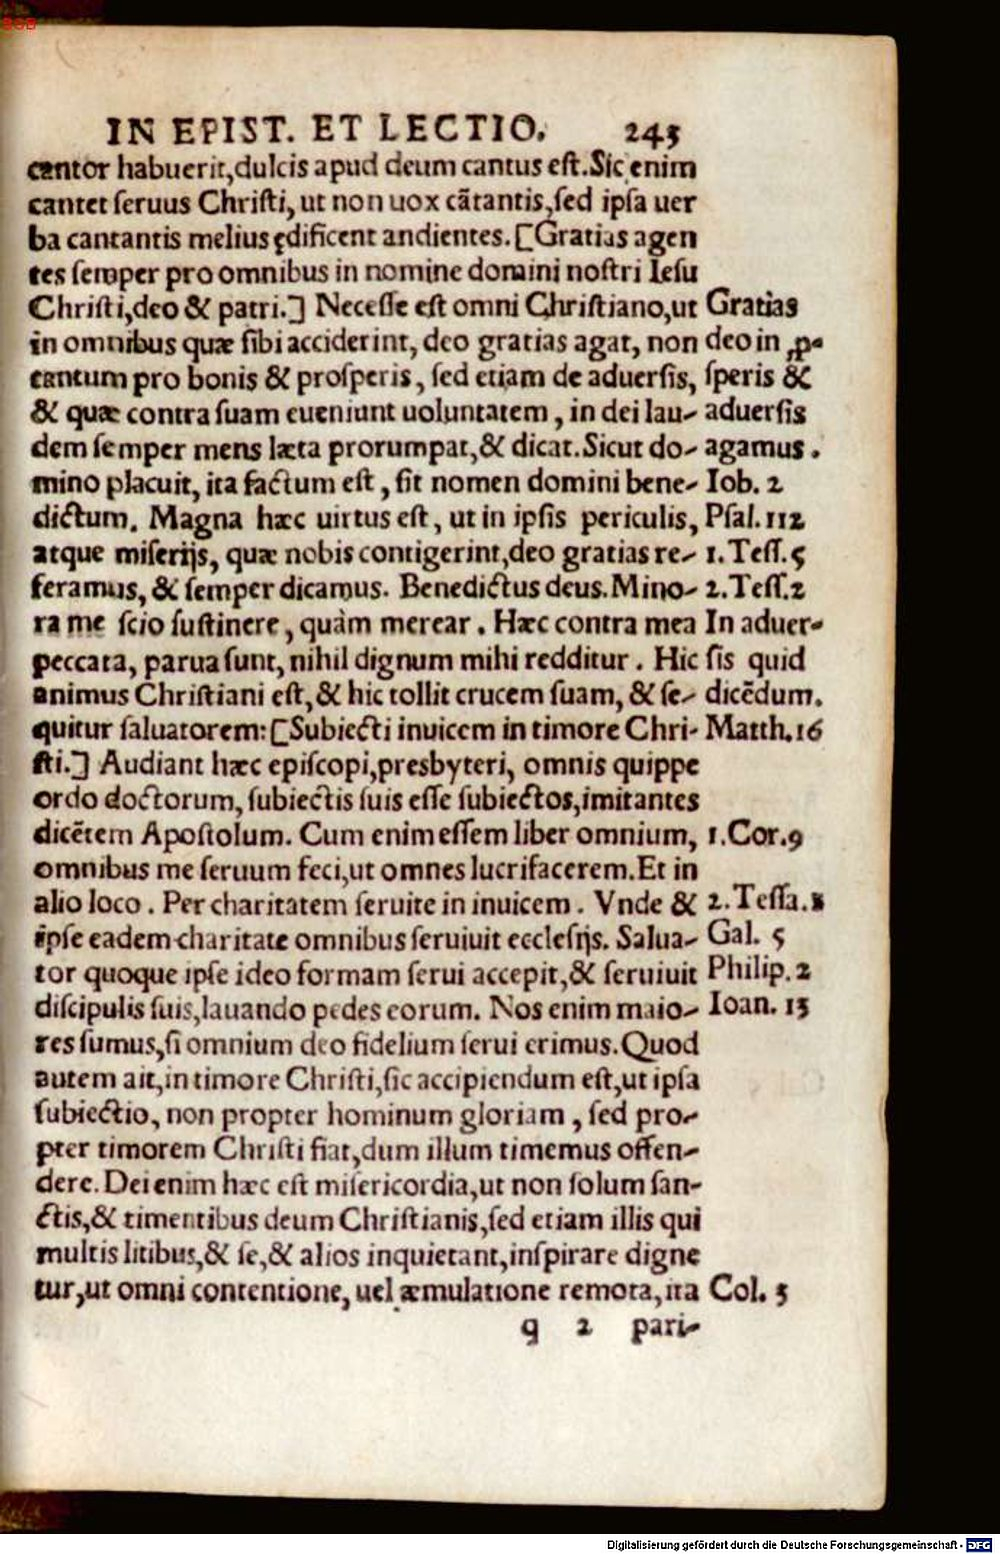 BSB
IN EPIST. ET LECTIO. 243
cantor habuerit,dulcis apud deum cantus est.Sic enim
cantet seruus Christi, ut non uox cãtantis,sed ipsa uer
ba cantantis melius ędificent andientes.[Gratias agen
tes semper pro omnibus in nomine domini nostri Iesu
Christi,deo & patri.] Necesse est omni Christiano,ut Gratias
in omnibus quæ sibi acciderint, deo gratias agat, non deo in ꝓ-
tantum pro bonis & prosperis, sed etiam de aduersis, speris &
& quæ contra suam eueniunt uoluntatem, in dei lau- aduersis
dem semper mens læta prorumpat,& dicat.Sicut do- agamus.
mino placuit, ita factum est, sit nomen domini bene- Iob. 2
dictum. Magna hæc uirtus est, ut in ipsis periculis, Psal.112
atque miserijs, quæ nobis contigerint,deo gratias re- 1.Tess.5
feramus, & semper dicamus. Benedictus deus.Mino- 2.Tess.2
ra me scio sustinere, quàm merear. Hæc contra mea In aduer-
peccata, parua sunt, nihil dignum mihi redditur. Hic sis quid
animus Christiani est,& hic tollit crucem suam, & se- dicẽdum.
quitur saluatorem:[Subiecti inuicem in timore Chri- Matth.16
sti.] Audiant hæc episcopi,presbyteri, omnis quippe
ordo doctorum, subiectis suis esse subiectos,imitantes
dicẽtem Apostolum. Cum enim essem liber omnium, 1.Cor.9
omnibus me seruum feci,ut omnes lucrifacerem.Et in
alio loco. Per charitatem seruite in inuicem. Vnde & 2.Tessa.
ipse eadem charitate omnibus seruiuit ecclesijs. Salua- Gal. 5
tor quoque ipse ideo formam serui accepit,& seruiuit Philip.2
discipulis suis,lauando pedes eorum. Nos enim maio- Ioan. 13
res sumus,si omnium deo fidelium serui erimus.Quod
autem ait,in timore Christi,sic accipiendum est,ut ipsa
subiectio, non propter hominum gloriam, sed pro-
pter timorem Christi fiat,dum illum timemus offen-
dere.Dei enim hæc est misericordia,ut non solum san-
ctis,& timentibus deum Christianis,sed etiam illis qui
multis litibus,& se,& alios inquietant,inspirare digne
tur,ut omni contentione, uel æmulatione remota, ita Col. 3
q 2 pari-
Digitalisierung gefördert durch die Deutsche Forschungsgemeinschaft - DFG